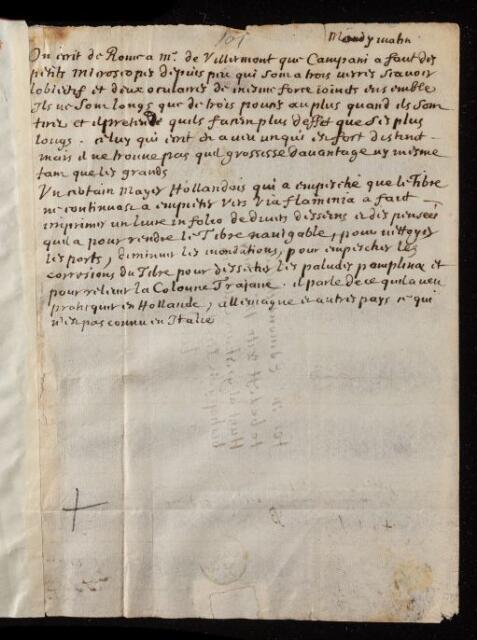 107
Mardy matin
On ecrit de Rome a Mr. de Villermont que Campani a fait des
petits microscopes depuis peu qui sont a trois verres scavoir
lobiectif et deux oculaires de mesme force ioints ensemble
Ils ne sont longs que de trois pouces au plus quand ils sont
tirez et il pretend quils facent plus deffet que ses plus
longs. celuy qui ecrit en a veu un qui est fort distinct
mais il ne trouve pas quil grossisse davantage ny mesme
tant que les grands
Un certain Mayer Hollandois qui a empesché que le Tibre
ne continuast a empieter vers Via flaminia a fait
imprimer un livre in folio de divers desseins et des pensées
quil a pour rendre le Tibre navigable, pour nettoyer
les ports, diminuer les inondations, pour empescher les
corrosions du Tibre pour dessecher les paludes pomptinæ et
pour relever la Colonne Trajane. il parle de ce quil a veu
pratiquer en Hollande, allemagne et autres pays ce qui
n'est pas connu en Italie